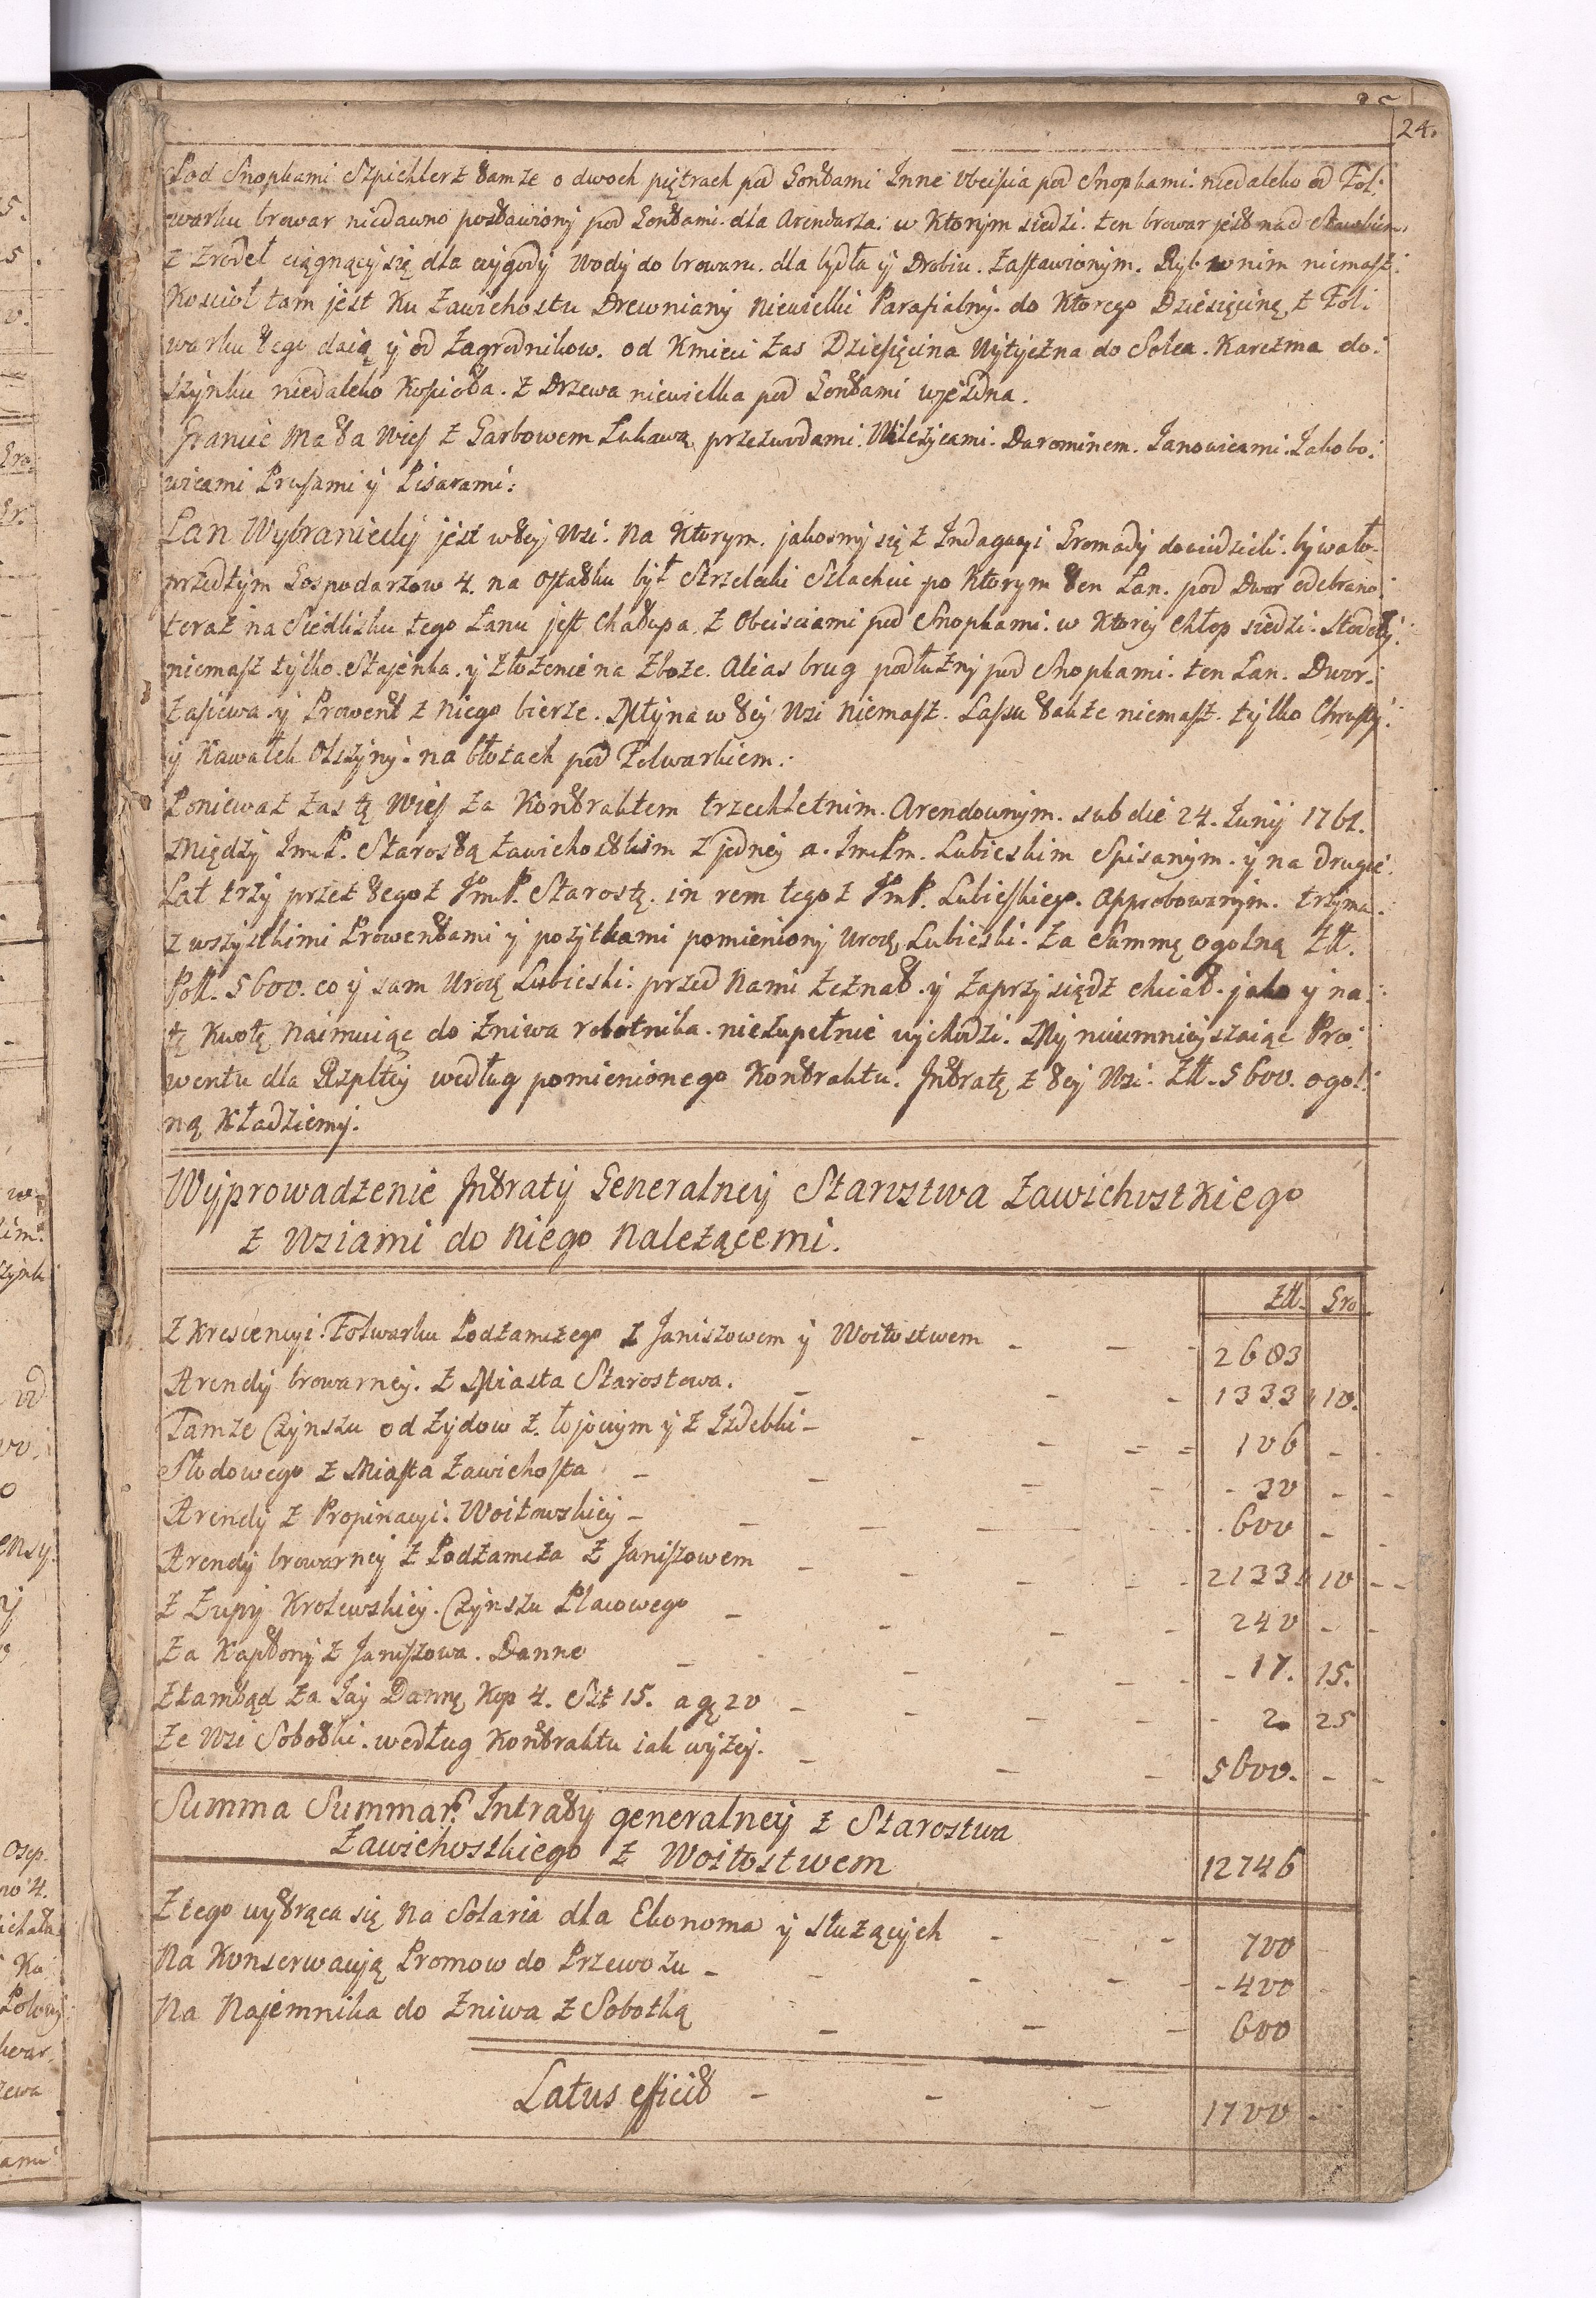 24.
Pod Snopkami Szpichlerz tamze o dwoch piętrach pod Gontami Inne Obeiścia pod Snopkami. niedaleko od Fol:
warku browar niedawno postawiony pod Gontami. dla Arendarza. w Ktorym siedzi. ten browar jest nad Stawkiem
z Zrodeł ciągnący się dla wygody Wody do browaru. dla bydła y Drobiu. Zastawionym. Ryb w nim niemasz.
Kościoł tam jest Ku Zawichostu Drewniany Niewielki Parafialny. do Ktorego Dziesięcinę z Fol:
warku tego daią y od Zagrodnikow. od Kmieci Zas Dziesięcina Wytyczna do Solca. Karczma do
szynku niedaleko Kościoła. z Drzewa niewielka pod Gontami wjezdna.
Granice Ma ta Wieś z Garbowem Lukawą przezwodami. Milczycami. Darominem. Janowicami. Jakobo:
wicami Prusami y Pisarami:
Łan Wybraniecky jest w tey Wsi. Na Ktorym. jakosmy się z Indagacyi Gromady dowiedzieli. bywało
przedtym Gospodarzow 4. na ostatku był Strzelecki Szlachcic po Ktorym ten Łan. pod Dwor odebrano
teraz na Siedlisku tego Łanu jest Chałupa z Obeisciami pod Snopkami. w Ktorey Chłop siedzi. Stodoły
niemasz tylko Stajenka. y złożenie na Zboże. Alias brug podłużny pod Snopkami. ten Łan. Dwor.
Zasiewa y Prowent z niego bierze. Młyna w tey Wsi Niemasz. Lassu także niemasz. tylko Chrusty
y Kawałek Olszyny. na błotach pod Folwarkiem.
Poniewaz zas tę Wieś za Kontraktem trzechletnim. Arendownym. sub die 24. Junij 1761.
Między Jm. P. Starostą Zawichostkim z jedney a. Jm. Pm. Lubieskim Spisanym. y na drugie
Lat trzy przez tegoz Jm. P. Starostę. in rem tegoz Jm P. Lubieskiego. Approbowanym. trzyma.
z wszystkimi Prowentami y pozytkami pomieniony Urodz. Lubieski. Za Summę Ogolną Złł.
Poll. 5600. co y sam Urodz Lubieski. przed Nami zeznał. y zaprzysiędz chciał. jako y na
tę Kwotę Naimuiąc do żniwa robotnika. niezupełnie wychodzi. My nieumnieyszaiąc Pro:
wentu dla Rzpltey według pomienionego Kontraktu. Intratę z tey Wsi. Złł. 5600. ogol:
ną Kładziemy.
Wyprowadzenie Intraty Generalney Starostwa Zawichostkiego
z Wsiami do Niego Należącemi.
Złł. Gro
Z Krescencyi Folwarku Podzamczego z Janiszowem y Woitostwem 2683
Arendy browarney. z Miasta Starostowa. 1333 10.
Tamze Czynszu od Zydow z. łojowym y z Izdebki 106
Słodowego z Miasta Zawichosta 30
Arendy z Propinacyi. Woitowskiey 600
Arendy browarney z Podzamcza z Janiszowem 2133 10
Z Zupy Krolewskiey. Czynszu Placowego 240
Za Kapłony z Janiszowa. Danne 17. 15.
Ztamtąd za Jay Dannę Kop 4. Szt 15. a gę 20 2 25
Ze Wsi Sobotki. według Kontraktu iak wyzey. 5600.
Summa Summar. Intraty generalney z Starostwa
Zawichostkiego z Woitostwem 12746
Z tego wytrąca się Na Solaria dla Ekonoma y służących 700
Na Konserwacyją Promow do Przewozu 400
Na Najemnika do Zniwa z Sobotką 600
Latus efficit 1700